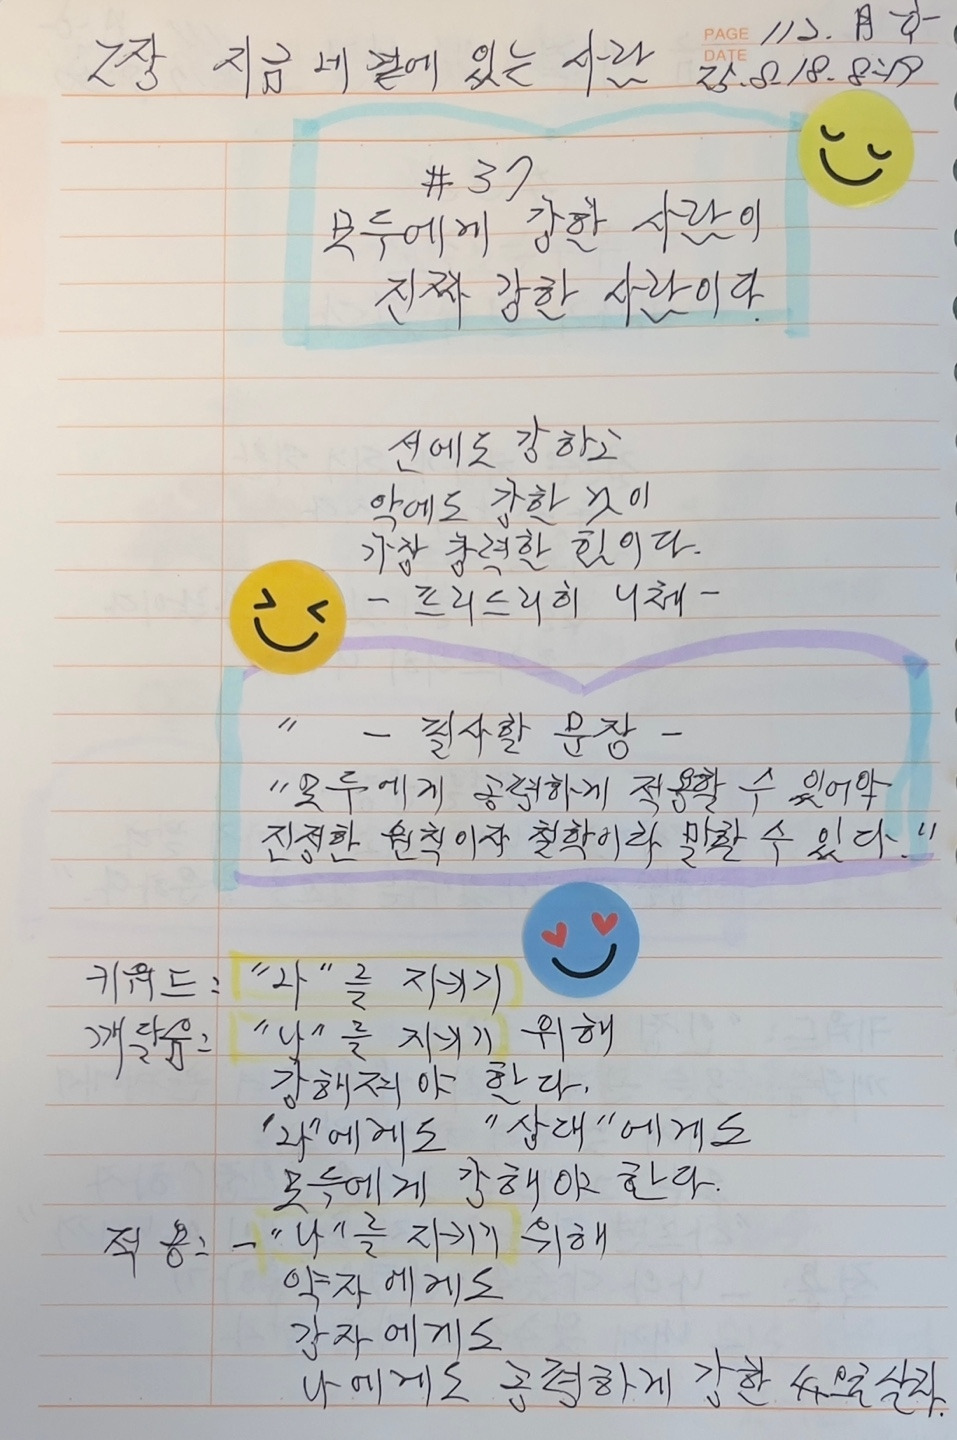 2장 지금 네 곁에 있는 사람
PAGE 112. 月
DATE 25.8.18.
#37
모두에게 강한 사람이
진짜 강한 사람이다.
선에도 강하고
악에도 강한 것이
가장 강력한 힘이다.
- 프리드리히 니체 -
" - 필사할 문장 -
"모두에게 공평하게 적용할 수 있어야
진정한 원칙이자 철학이라 말할 수 있다."
키워드: "나"를 지키기
깨달음: "나"를 지키기 위해
강해져야 한다.
"나"에게도 "상대"에게도
모두에게 강해야 한다.
적용: - "나"를 지키기 위해
약자에게도
강자에게도
나에게도 공평하게 강한 살자.